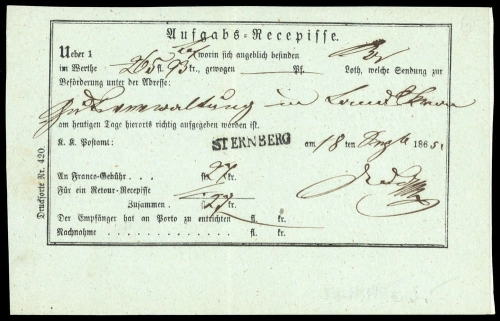 Aufgabs-Recepisse.
Ueber 1 worin sich angeblich befinden
im Werthe 265 fl. 93 kr., gewogen Pf. Loth, welche Sendung zur
Beförderung unter der Adresse:
Gutsverwaltung in Landskron
am heutigen Tage hierorts richtig aufgegeben worden ist.
K. K. Postamt: STERNBERG am 18 ten 1865.
An Franco-Gebühr . . . fl. 27 kr.
Für ein Retour-Recepisse
Zusammen . fl. 27 kr.
Der Empfänger hat an Porto zu entrichten fl. kr.
Nachnahme . . . . . . . . . . . . . fl. kr.
Drucksorte Nr. 420.